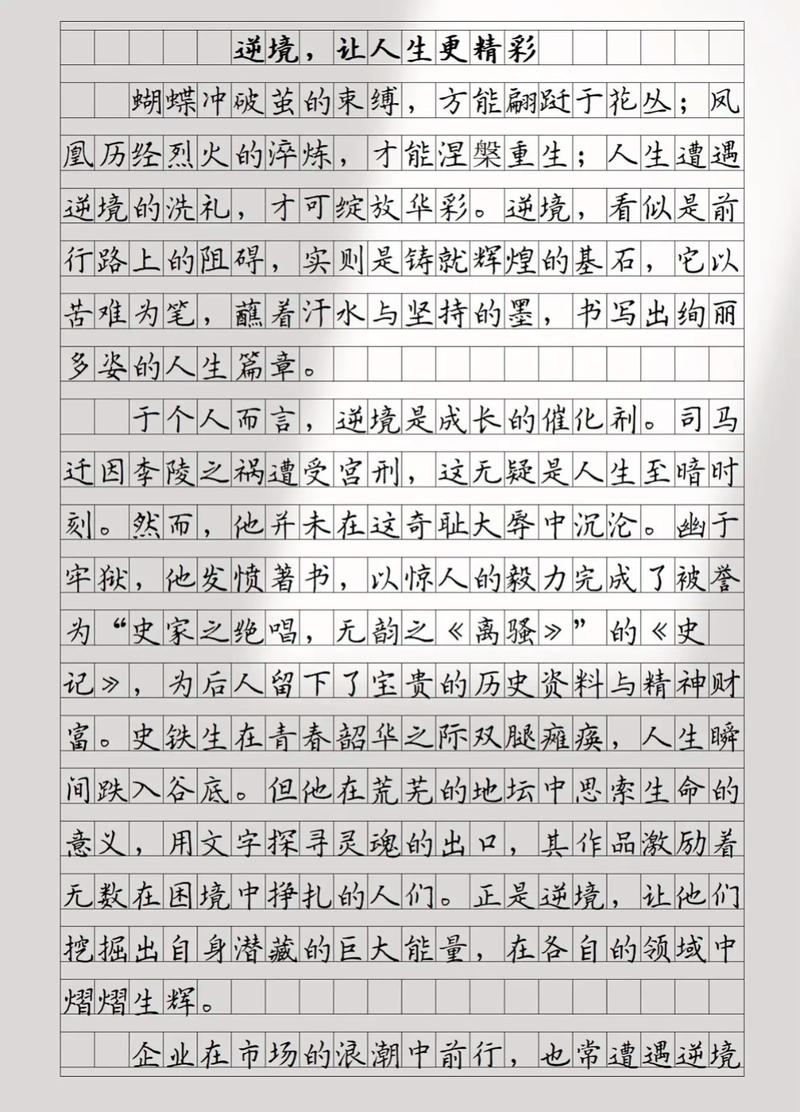 逆境，让人生更精彩
蝴蝶冲破茧的束缚，方能翩跹于花丛；凤
凰历经烈火的淬炼，才能涅槃重生；人生遭遇
逆境的洗礼，才可绽放华彩。逆境，看似是前
行路上的阻碍，实则是铸就辉煌的基石，它以
苦难为笔，蘸着汗水与坚持的墨，书写出绚丽
多姿的人生篇章。
于个人而言，逆境是成长的催化剂。司马
迁因李陵之祸遭受宫刑，这无疑是人生至暗时
刻。然而，他并未在这奇耻大辱中沉沦。幽于
牢狱，他发愤著书，以惊人的毅力完成了被誉
为“史家之绝唱，无韵之《离骚》”的《史
记》，为后人留下了宝贵的历史资料与精神财
富。史铁生在青春韶华之际双腿瘫痪，人生瞬
间跌入谷底。但他在荒芜的地坛中思索生命的
意义，用文字探寻灵魂的出口，其作品激励着
无数在困境中挣扎的人们。正是逆境，让他们
挖掘出自身潜藏的巨大能量，在各自的领域中
熠熠生辉。
企业在市场的浪潮中前行，也常遭遇逆境